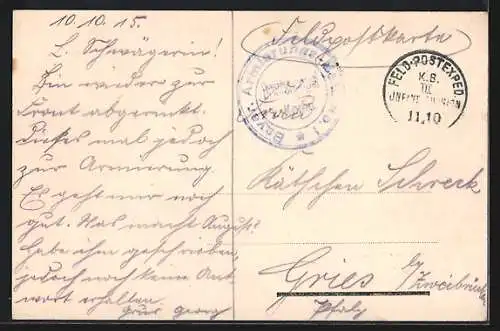 10.10.15.
Feldpostkarte
L. Schwägerin!
Bin wieder zur
Front abgerückt.
Dieses mal jedoch
zur Armierung.
Es geht mir noch
gut. Was macht August?
habe ihm geschrieben,
jedoch noch keine Ant-
wort erhalten.
Grus Georg
Bayer. Armierungs
FELD-POSTEXPED.
K.B.
III.
INFANT. DIVISION
11.10
Käthchen Schreck
Gries by
Zweibrücken
Pfalz